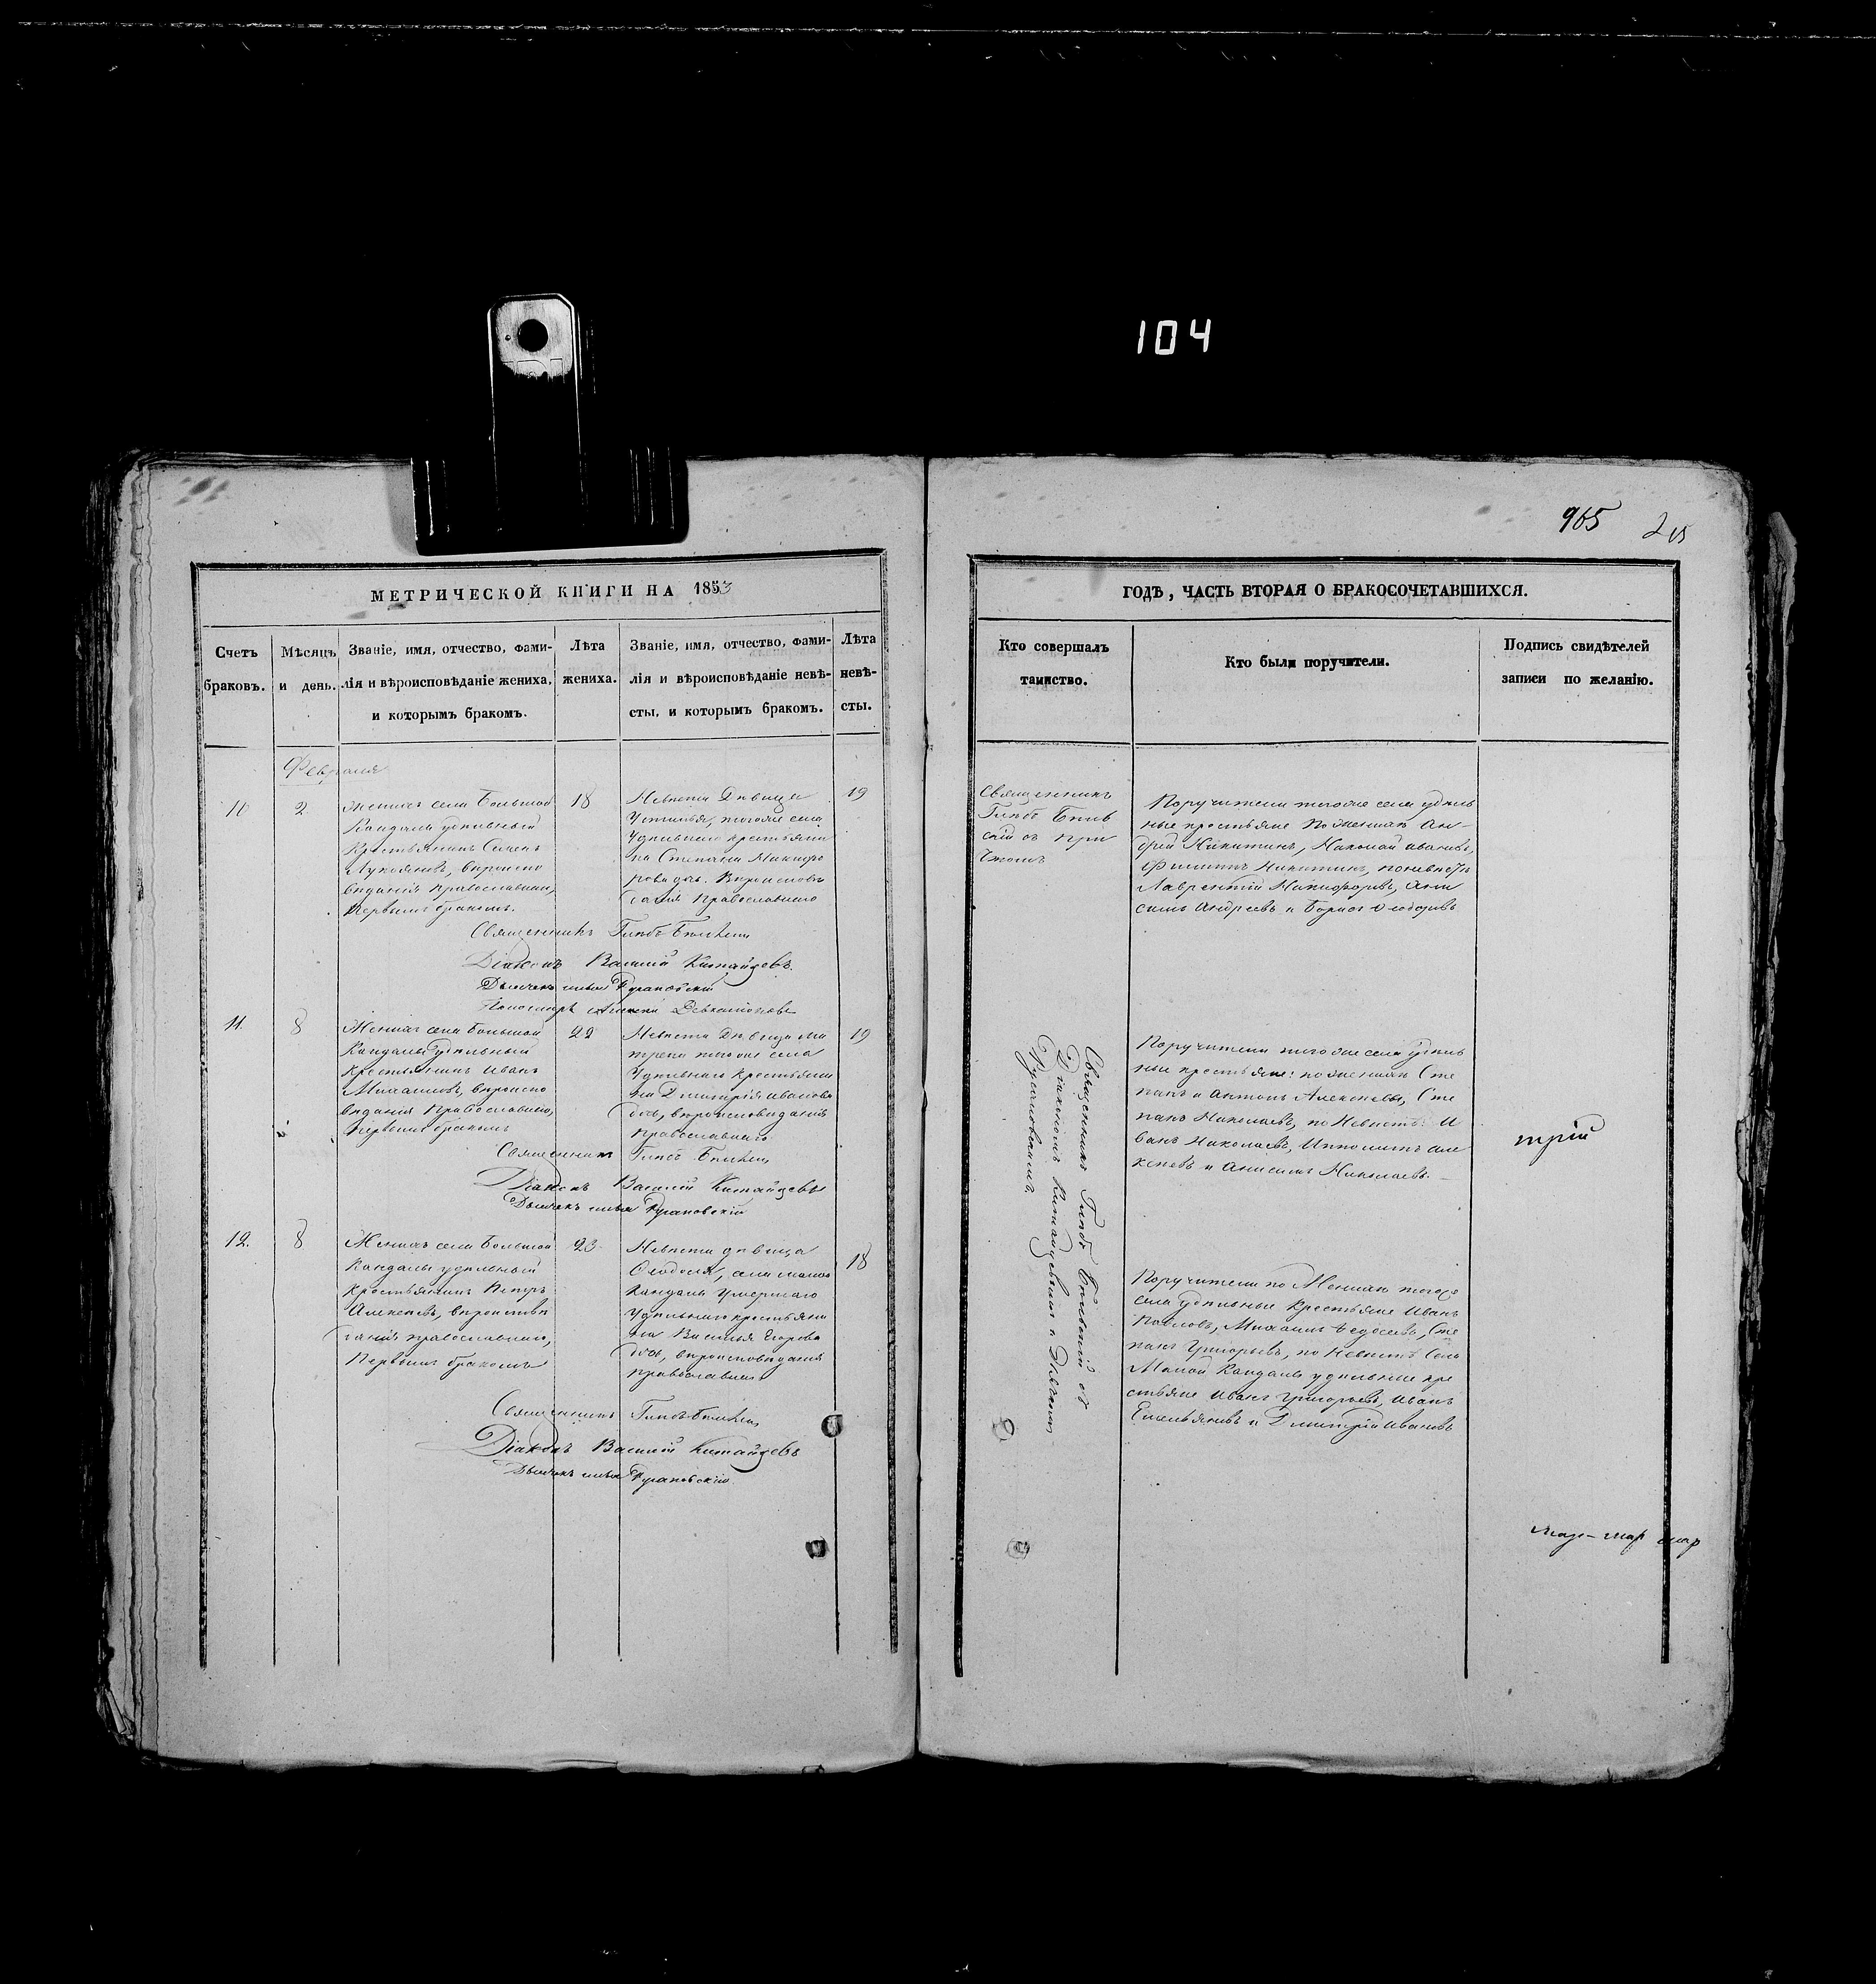 104
965
215
МЕТРИЧЕСКОЙ КНИГИ НА 1853
Счетъ браковъ.
Мѣсяцъ и день.
Званіе, имя, отчество, фами-
лія и вѣроисповѣданіе жениха,
и которымъ бракомъ.
Лѣта
жениха.
Званіе, имя, отчество, фами-
лія и вѣроисповѣданіе невѣ-
сты, и которымъ бракомъ.
Лѣта
невѣ-
сты.
Февраля
10
2
Женихъ села Большой
Кандалы удѣльный
Крестьянинъ Семенъ
Лукояновъ, вѣроиспо
веданія православнаго,
первымъ бракомъ.
18
Невѣста Дѣвица
Устинья, тогоже села
Удѣльнаго крестьяни
на Степана Никифо
рова дочь. Вѣроисповѣ
данія Православнаго
19
Священникъ Глѣбъ
Діаконъ Василій Китайцевъ.
Пономарь Алексей
11.
8
Женихъ села Большой
Кандалы удѣльный
Крестьянинъ Иванъ
Михайловъ, вѣроиспо
веданія Православнаго,
первымъ бракомъ
22
Невѣста Дѣвица Ма
трена тогоже села
Удѣльнаго Крестьяни
на Дмитрія Иванова
дочь, вѣроисповеданія
Православнаго
19
Священникъ Глѣбъ
Діаконъ Василій Китайцевъ
12.
8
Женихъ села Большой
Кандалы удѣльный
Крестьянинъ Петръ
Алексеевъ, вѣроисповѣ
данія православнаго,
Первымъ бракомъ
23
Невѣста дѣвица
Ѳеодосья, села Малой
Кандалы Умершаго
Удѣльнаго крестьяни
на Василья Егорова
дочь, вѣроисповеданія
православнаго
18
Священникъ Глѣбъ
Діаконъ Василій Китайцевъ
ГОДЪ, ЧАСТЬ ВТОРАЯ О БРАКОСОЧЕТАВШИХСЯ.
Кто совершалъ
таинство.
Кто были поручители.
Подпись свидѣтелей
записи по желанію.
Священникъ
Глѣбъ
скій съ при
чтомъ
Поручители тогоже села удѣль
ные крестьяне По Женихѣ Ан-
дрей Никитинъ, Николай Ивановъ,
Филиппъ Никитинъ, по невѣстѣ
Лаврентій Никифоровъ, Ани
симъ Андреевъ и Борисъ Ѳеодоровъ
Священникъ Глѣбъ съ
Діакономъ Китайцевымъ и Дьячкомъ
Поручители тогоже села удѣль
ные крестьяне: по женихѣ Сте
панъ и Антонъ Алексеевы, Сте
панъ Николаевъ, по Невѣстѣ: И
ванъ Николаевъ, Ипполитъ Але
ксеевъ и Анисимъ Николаевъ.
трій
Поручители по Женихѣ тогоже
села удѣльные Крестьяне Иванъ
Павловъ, Михаилъ Ѳедосеевъ, Сте
панъ Григорьевъ, по Невѣстѣ Села
Малой Кандалы удѣльные кре
стьяне Иванъ Григорьевъ, Иванъ
Емельяновъ и Дмитрій Ивановъ